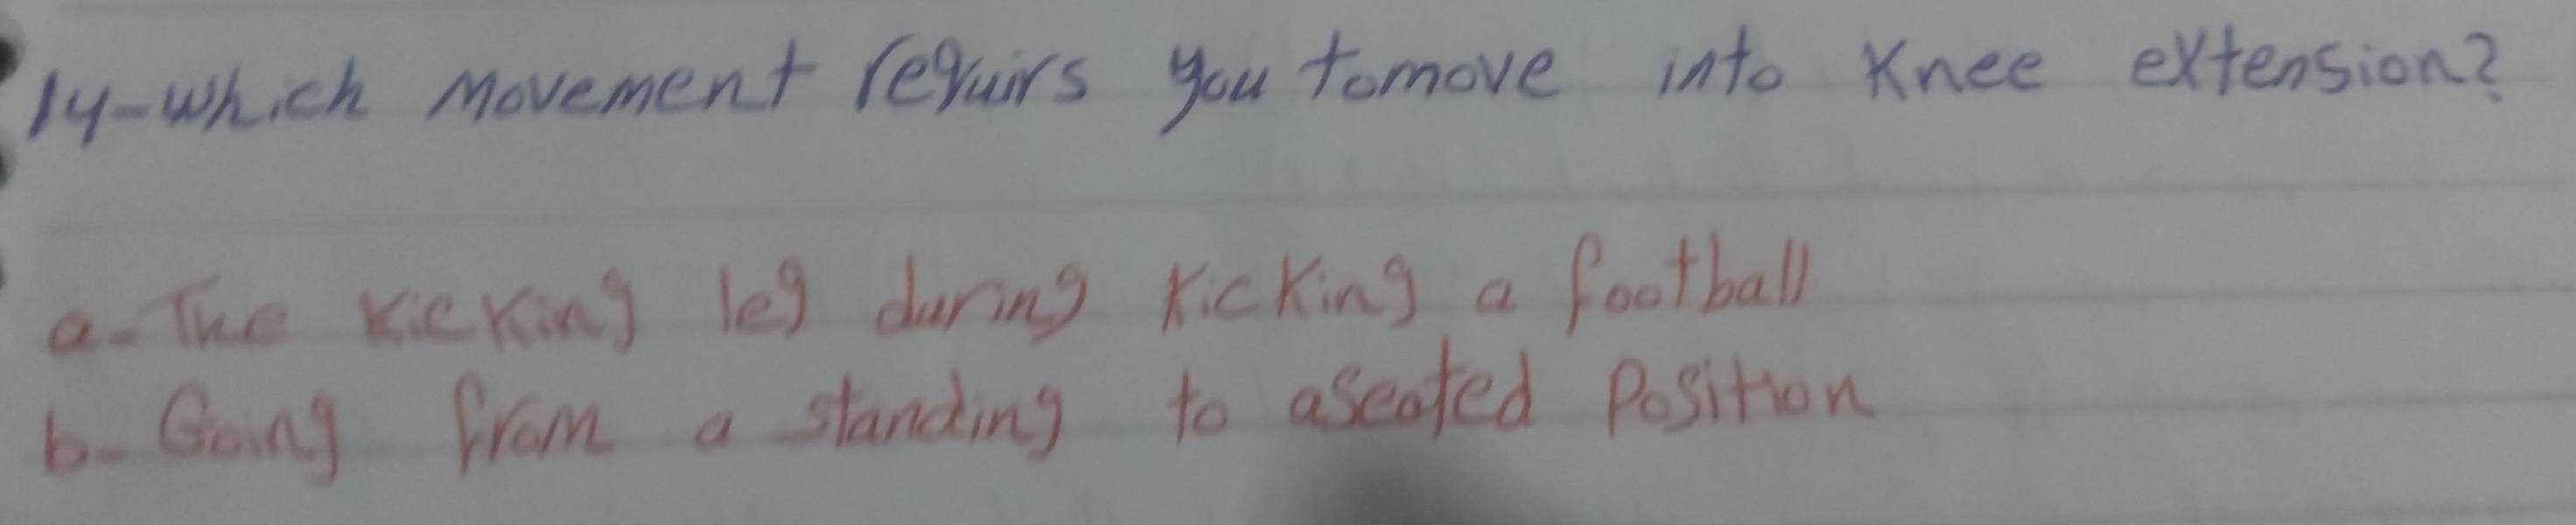 14-which movement requirs you tomove into Knee extension?
a-The kicking leg during kicking a football
b-Going from a standing to aseated Position